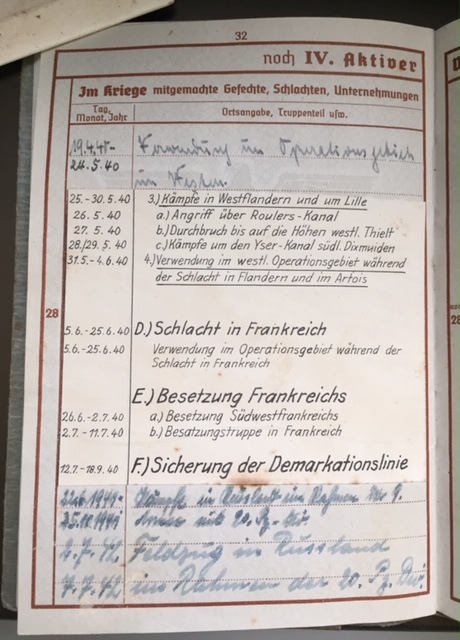 32
noch IV. Aktiver
Im Kriege mitgemachte Gefechte, Schlachten, Unternehmungen
Tag, Monat, Jahr Ortsangabe, Truppenteil usw.
19.4.40- Verwendung im Operationsgebiet
24.5.40 im Westen.
25.-30.5.40 3.) Kämpfe in Westflandern und um Lille
26.5.40 a.) Angriff über Roulers-Kanal
27.5.40 b.) Durchbruch bis auf die Höhen westl. Thielt
28./29.5.40 c.) Kämpfe um den Yser-Kanal südl. Dixmuiden
31.5.-4.6.40 4.) Verwendung im westl. Operationsgebiet während
der Schlacht in Flandern und im Artois
28
5.6.-25.6.40 D.) Schlacht in Frankreich
5.6.-25.6.40 Verwendung im Operationsgebiet während der
Schlacht in Frankreich
E.) Besetzung Frankreichs
26.6.-2.7.40 a.) Besetzung Südwestfrankreichs
2.7.-11.7.40 b.) Besatzungstruppe in Frankreich
12.7.-18.9.40 F.) Sicherung der Demarkationslinie
1941- Kämpfe in Russland im Rahmen der 9.
25.10.1941 Armee mit 20. Pz. Div.
2.7.42 Feldzug in Russland
7.7.42 im Rahmen der 20. Pz. Div.
28